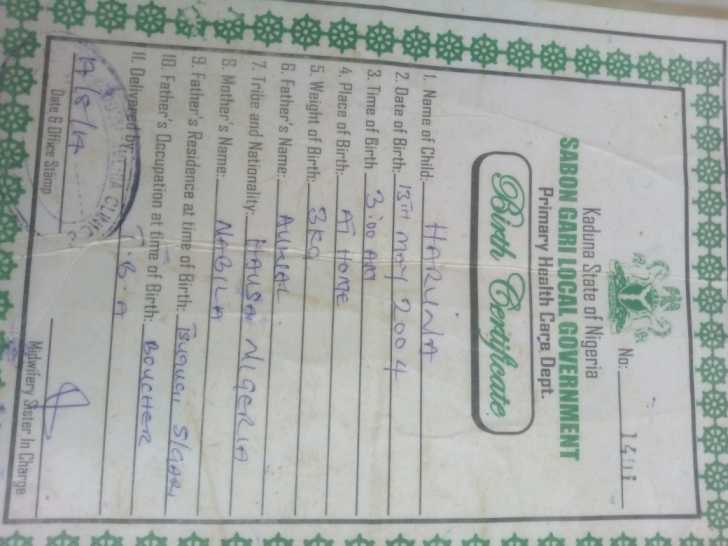 No: 1411
Kaduna State of Nigeria
SABON GARI LOCAL GOVERNMENT
Primary Health Care Dept.
Birth Certificate
1. Name of Child: HARUNA
2. Date of Birth: 13TH MAY 2004
3. Time of Birth 3:00 AM
4. Place of Birth: AT HOME
5. Weight of Birth: 3KG
6. Father's Name:
7. Tribe and Nationality: HAUSA NIGERIA
8. Mother's Name: NABILA
9. Father's Residence at time of Birth: S/GARI
10. Father's Occupation at time of Birth: BOUCHER
11. Delivered by: T.B.A
Date & Office Stamp
Midwifery Sister In Charge